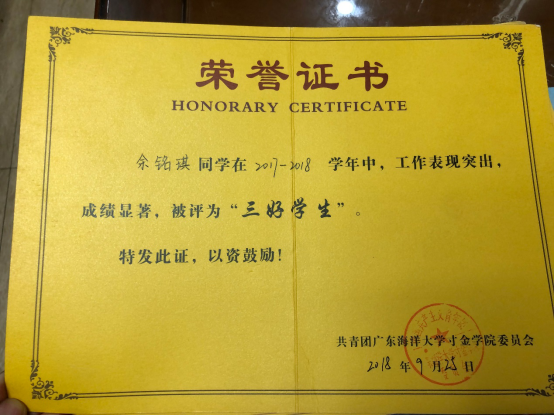 荣誉证书
HONORARY CERTIFICATE
余铭琪 同学在 2017-2018 学年中，工作表现突出，
成绩显著，被评为“三好学生”。
特发此证，以资鼓励！
共青团广东海洋大学寸金学院委员会
2018 年 9 月 25 日